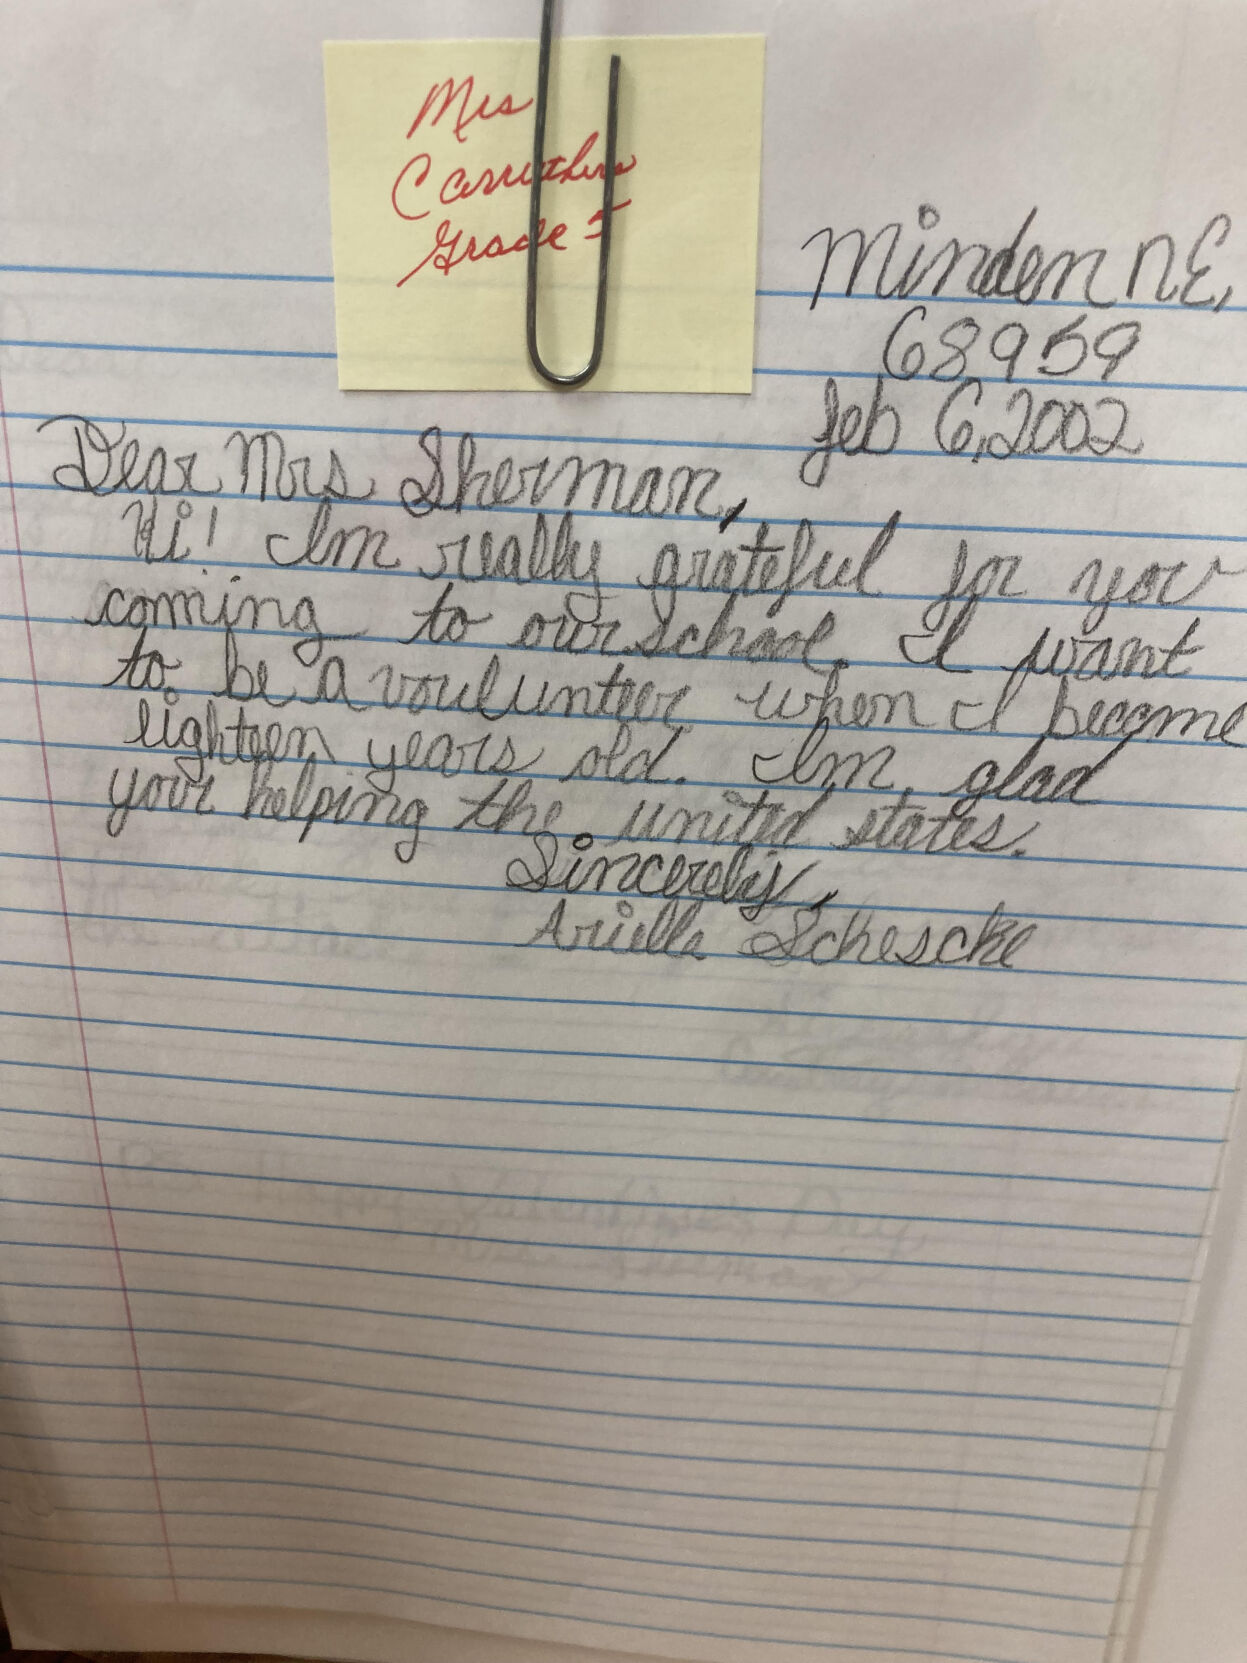 Mrs
Carruthers
Grade 5
Minden N.E,
68959
Feb 6, 2002
Dear Mrs Sherman,
Hi! Im really grateful for you
coming to our school. I want
to be a voulunteer when I become
eighteen years old. Im glad
your helping the united states.
Sincerely,
Ariella Sckescke